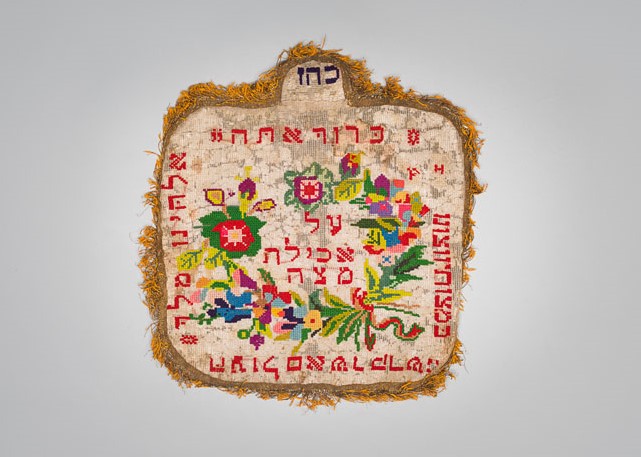 כהן
ברוך אתה יי
אלהינו מלך
העולם אשר קדש
במצותיו וצונו
על
אכילת
מצה